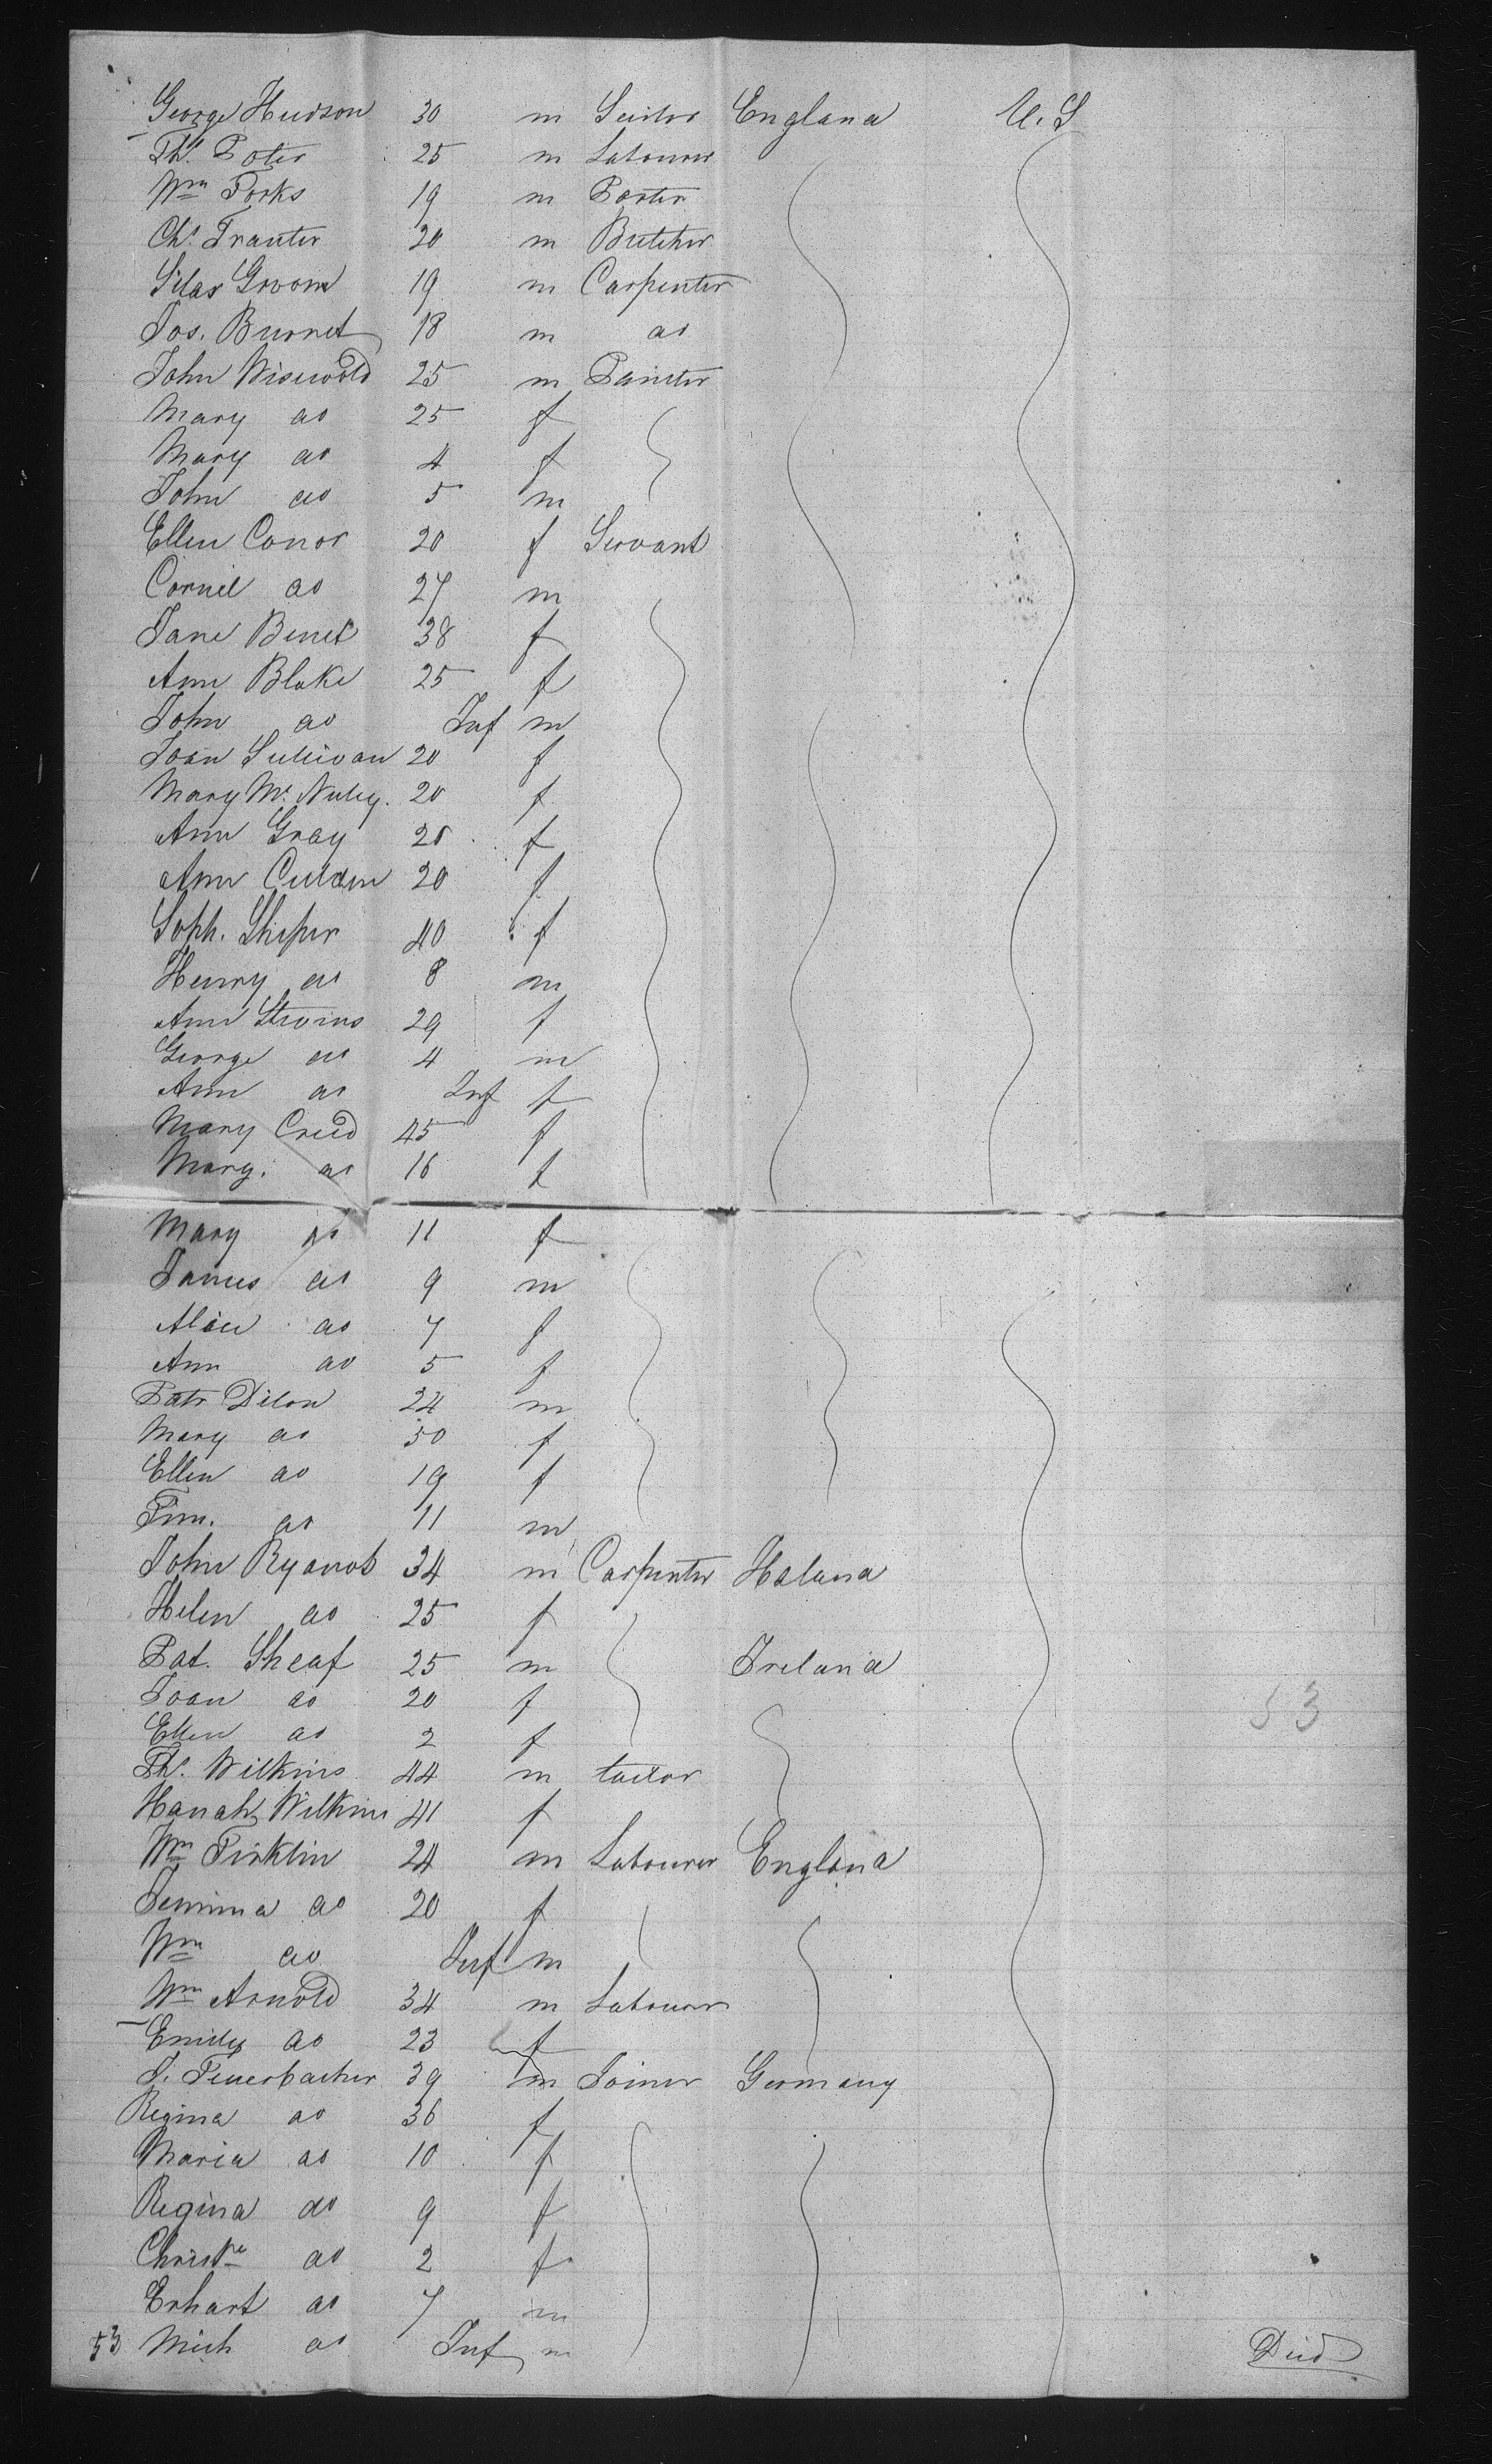 George Hudson 30 m Sailor England U.S
Ths. Poter 25 m Labourer
Wm Forks 19 m Porter
Chs. Tranter 20 m Butcher
Silas Groom 19 m Carpenter
Jos. Burnet 18 m do
John Wisewold 25 m Painter
Mary do 25 f
Mary do 4 f
John do 5 m
Ellen Conor 20 f Servant
Cornel do 27 m
Jane Benet 38 f
Ann Blake 25 f
John do Inf m
Joan Sulivan 20 f
Mary Mc. Nuley. 20 f
Ann Gray 20 f
Ann Culden 20 f
Soph. Sheper 40 f
Henry do 8 m
Ann Stevins 29 f
George do 4 m
Ann do Inf f
Mary Creed 45 f
Marg. do 16 f
Mary do 11 f
James do 9 m
Alice do 7 f
Ann do 5 f
Patr Dilon 24 m
Mary do 50 f
Ellen do 19 f
Tim. do 11 m
John Ryanot 34 m Carpenter Holand
Helen do 25 f
Pat. Sheaf 25 m Ireland
Joan do 20 f 53
Ellen do 2 f
Ths. Wilkins 44 m tailor
Hanah Wilkins 41 f
Wm Pirklin 24 m Labourer England
Jemima do 20 f
Wm do Inf m
Wm Arnold 34 m Labourer
Emily do 23 f
J. Feuerbacher 39 m Joiner Germany
Regina do 36 f
Maria do 10 f
Regina do 9 f
Christne do 2 f
Erhart do 7 m
53 Mich do Inf m Died